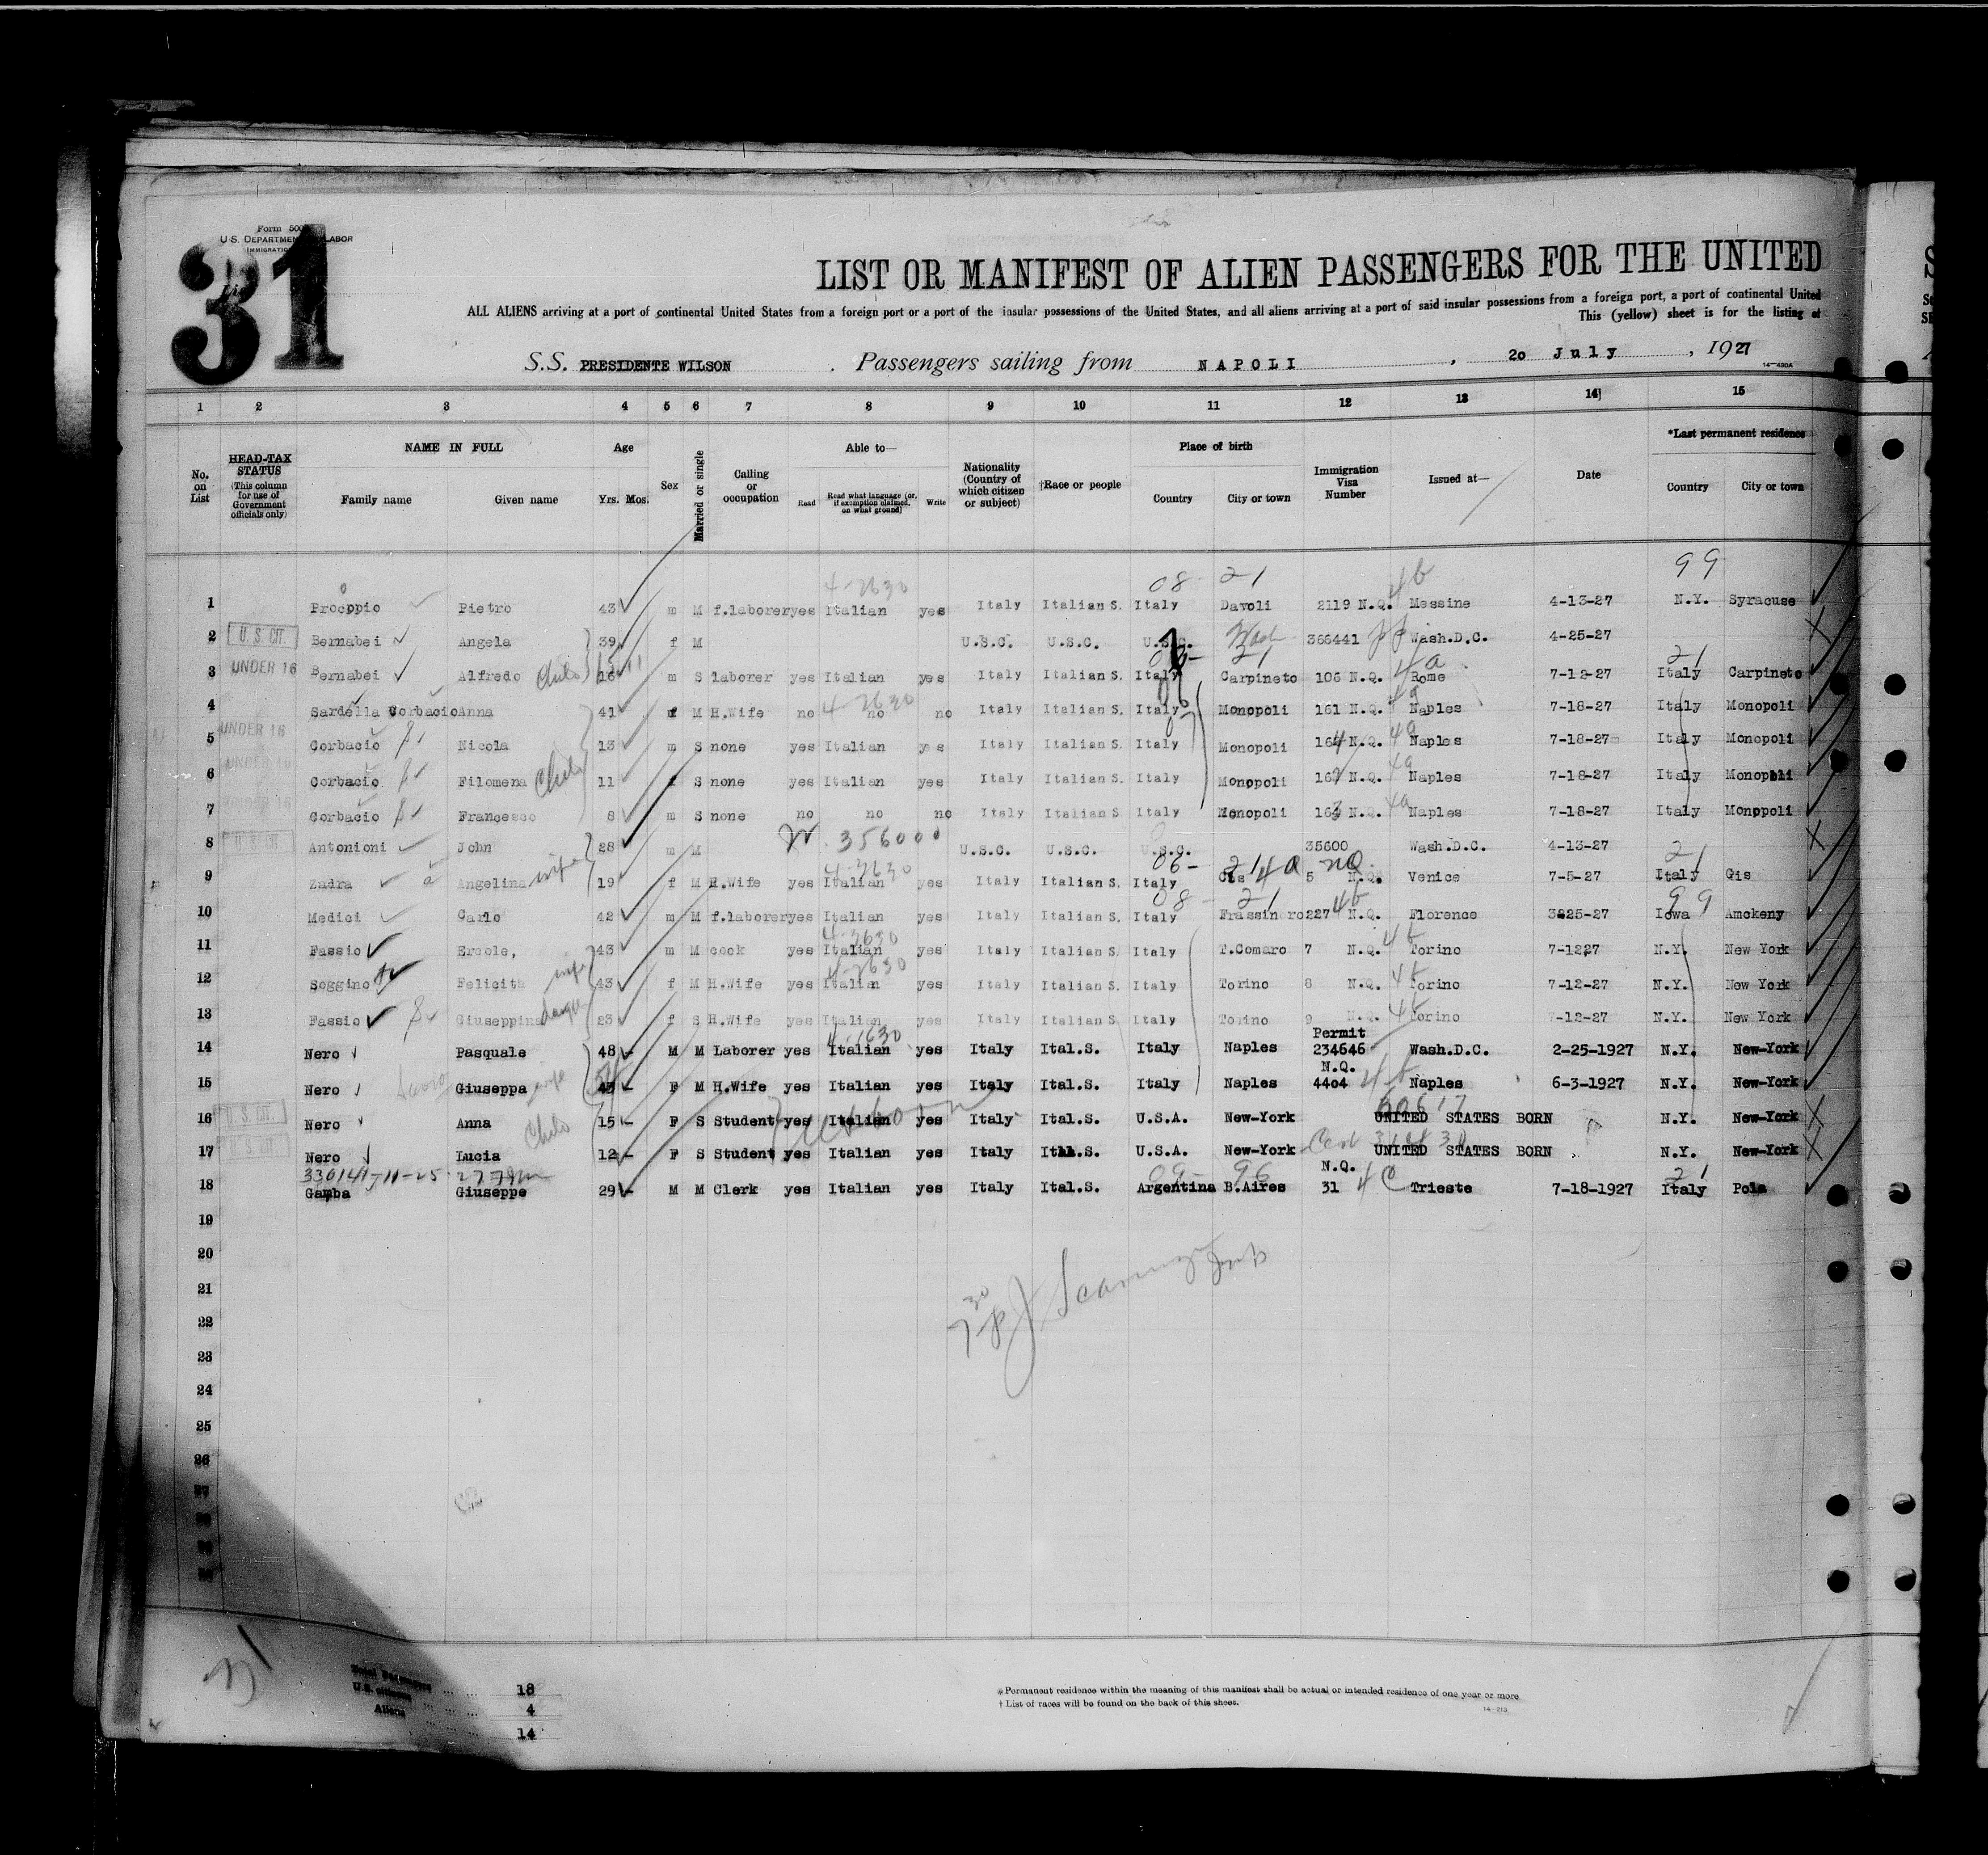 Form 500
U.S. DEPARTMENT LABOR
31
LIST OR MANIFEST OF ALIEN PASSENGERS FOR THE UNITED
ALL ALIENS arriving at a port of continental United States from a foreign port or a port of the insular possessions of the United States, and all aliens arriving at a port of said insular possessions from a foreign port, a port of continental United
This (yellow) sheet is for the listing of
S.S. PRESIDENTE WILSON . Passengers sailing from NAPOLI , 20 July , 1927
14—430A
1 2 3 4 5 6 7 8 9 10 11 12 13 14 15
No. on List
HEAD-TAX STATUS (This column for use of Government officials only)
NAME IN FULL
Family name Given name
Age
Yrs. Mos.
Sex
Married or single
Calling or occupation
Able to—
Read Read what language (or, if exemption claimed, on what ground) Write
Nationality (Country of which citizen or subject)
†Race or people
Place of birth
Country City or town
Immigration Visa Number
Issued at—
Date
*Last permanent residence
Country City or town
4-2630 08- 21 4b 99
1 Procopio Pietro 43 m M f.laborer yes Italian yes Italy Italian S. Italy Davoli 2119 N.Q. Messine 4-13-27 N.Y. Syracuse
2 U.S. CIT. Bernabei Angela 39 f M U.S.C. U.S.C. U.S.C. Wash 366441 Wash.D.C. 4-25-27
3 UNDER 16 Bernabei Alfredo Child 16 m S laborer yes Italian yes Italy Italian S. Italy Carpineto 106 N.Q. 4a Rome 7-12-27 Italy Carpineto
4 Sardella Corbacio Anna 41 f M H.Wife no no no Italy Italian S. Italy Monopoli 161 N.Q. 4a Naples 7-18-27 Italy Monopoli
5 UNDER 16 Corbacio Nicola 13 m S none yes Italian yes Italy Italian S. Italy Monopoli 164 N.Q. 4a Naples 7-18-27 Italy Monopoli
6 UNDER 16 Corbacio Filomena Child 11 f S none yes Italian yes Italy Italian S. Italy Monopoli 162 N.Q. 4a Naples 7-18-27 Italy Monopoli
7 UNDER 16 Corbacio Francesco 8 m S none no no no Italy Italian S. Italy Monopoli 163 N.Q. 4a Naples 7-18-27 Italy Monopoli
8 U.S. CIT. Antonioni John 28 m M 356000 U.S.C. U.S.C. U.S.C. 35600 Wash.D.C. 4-13-27
9 Zadra Angelina wife 19 f M H.Wife yes Italian yes Italy Italian S. Italy Gis 5 N.Q. Venice 7-5-27 Italy Gis
10 Medici Carlo 42 m M f.laborer yes Italian yes Italy Italian S. Italy Frassinoro 227 N.Q. 4b Florence 3825-27 Iowa Amckeny
11 Fassio Ercole, 43 m M cook yes Italian yes Italy Italian S. Italy T.Comaro 7 N.Q. 4b Torino 7-1227 N.Y. New York
12 Soggino Felicita wife 43 f M H.Wife yes Italian yes Italy Italian S. Italy Torino 8 N.Q. 4b Torino 7-12-27 N.Y. New York
13 Fassio Giuseppina 23 f S H.Wife yes Italian yes Italy Italian S Italy Torino 9 N.Q. 4b Torino 7-12-27 N.Y. New York
14 Nero Pasquale 48 M M Laborer yes Italian yes Italy Ital.S. Italy Naples Permit 234646 Wash.D.C. 2-25-1927 N.Y. New-York
15 Nero Giuseppa wife F M H.Wife yes Italian yes Italy Ital.S. Italy Naples N.Q. 4404 4b Naples 6-3-1927 N.Y. New-York
16 U.S. CIT. Nero Anna Child 15 F S Student yes Italian yes Italy Ital.S. U.S.A. New-York UNITED STATES BORN N.Y. New-York
17 U.S. CIT. Nero Lucia 12 F S Student yes Italian yes Italy Ital.S. U.S.A. New-York UNITED STATES BORN N.Y. New-York
18 Gamba Giuseppe 29 M M Clerk yes Italian yes Italy Ital.S. Argentina B.Aires N.Q. 31 4c Trieste 7-18-1927 Italy Pola
19
20
21
22
23
24
25
26
27
31
Total Passengers ... 18
U.S. citizens ... 4
Aliens ... 14
* Permanent residence within the meaning of this manifest shall be actual or intended residence of one year or more.
† List of races will be found on the back of this sheet.
14—213